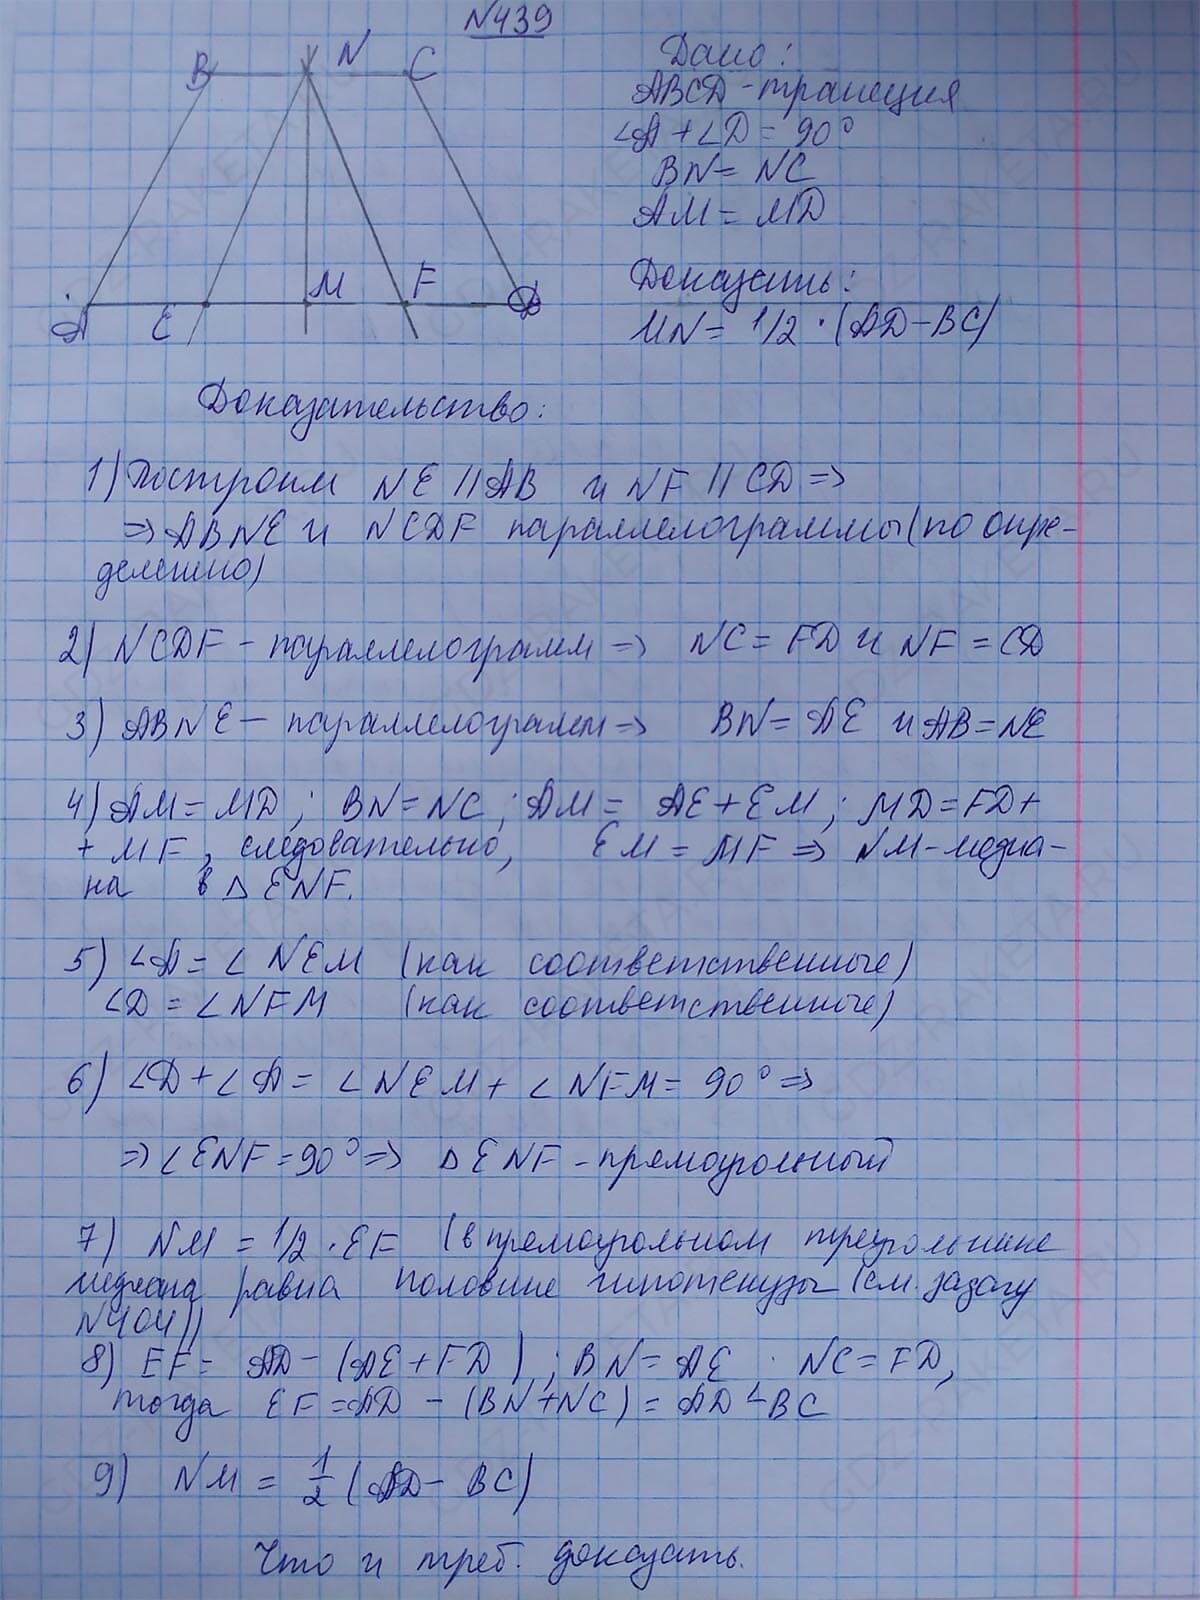 N439
B N C
A E M F D
Дано:
ABCD - трапеция
∠A + ∠D = 90°
BN = NC
AM = MD
Доказать:
MN = 1/2 · (AD - BC)
Доказательство:
1) Построим NE || AB и NF || CD ⇒
⇒ ABNE и NCDF параллелограммы (по опре-
делению)
2) NCDF - параллелограмм ⇒ NC = FD и NF = CD
3) ABNE - параллелограмм ⇒ BN = AE и AB = NE
4) AM = MD; BN = NC; AM = AE + EM; MD = FD +
+ MF, следовательно, EM = MF ⇒ NM - медиа-
на в Δ ENF.
5) ∠A = ∠ NEM (как соответственные)
∠D = ∠NFM (как соответственные)
6) ∠D + ∠A = ∠NEM + ∠NFM = 90° ⇒
⇒ ∠ENF = 90° ⇒ Δ ENF - прямоугольный
7) NM = 1/2 · EF (в прямоугольном треугольнике
медиана равна половине гипотенузы (см. задачу
N404))
8) EF = AD - (AE + FD); BN = AE · NC = FD,
тогда EF = AD - (BN + NC) = AD - BC
9) NM = 1/2 (AD - BC)
Что и треб. доказать.